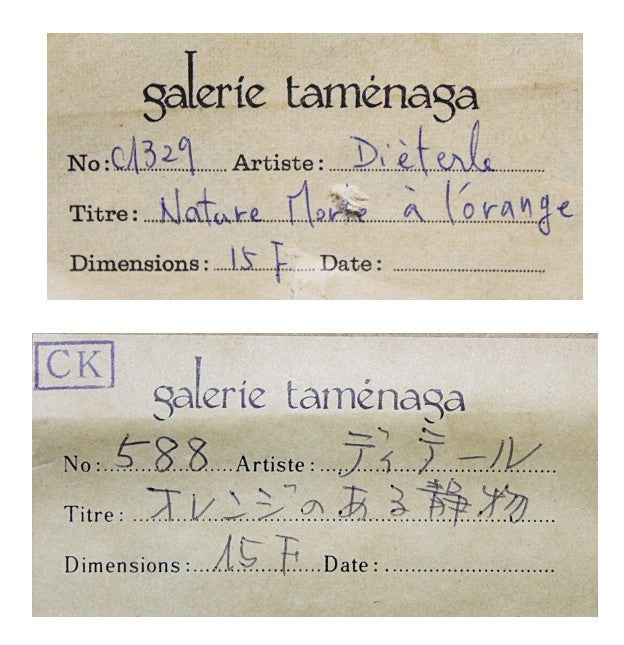 galerie taménaga
No: C1329 Artiste: Dièterle
Titre: Nature Morte à l'orange
Dimensions: 15 F Date:
CK
galerie taménaga
No: 588 Artiste: ディテール
Titre: オレンジのある静物
Dimensions: 15 F Date: